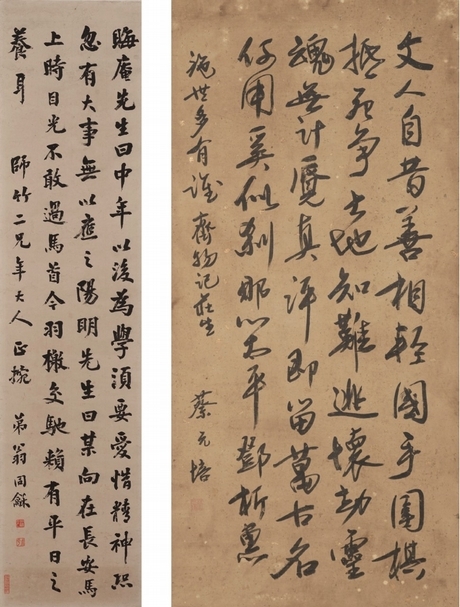 晦庵先生曰中年以後為學須要愛惜精神恐
忽有大事無以應之陽明先生曰某向在長安馬
上時目光不敢過馬首今羽檄交馳賴有平日之
養耳 師竹二兄年大人正捥 弟翁同龢
文人自昔善相輕國手圍棋
抵死爭大地知難逃壞劫靈
魂無計覓真評即留萬古名
何用奚似剎那心太平鄧析惠
施世多有誰齊物記莊生 蔡元培